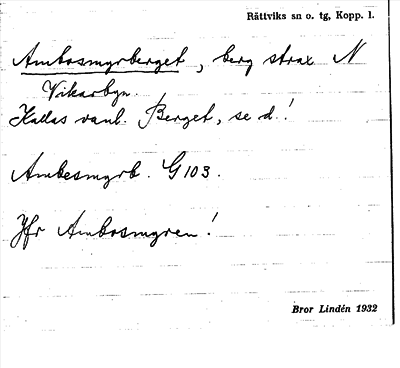 Rättviks sn o. tg, Kopp. l.
Ambosmyrberget, berg strax N
Vikarbyn.
Kallas vanl. Berget, se d.!
Ambesmyrb. G 103.
Jfr Ambosmyren!
Bror Lindén 1932